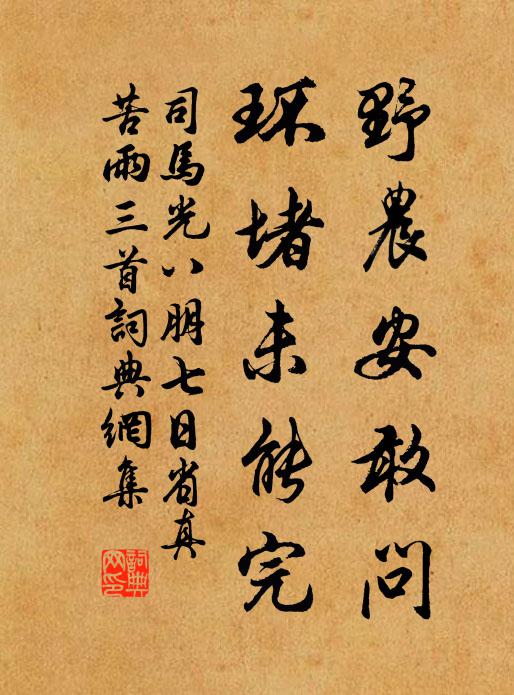 野農安敢問
环堵未能完
司馬光八朋七日省真
苦雨三首詞典網集
詞典網印